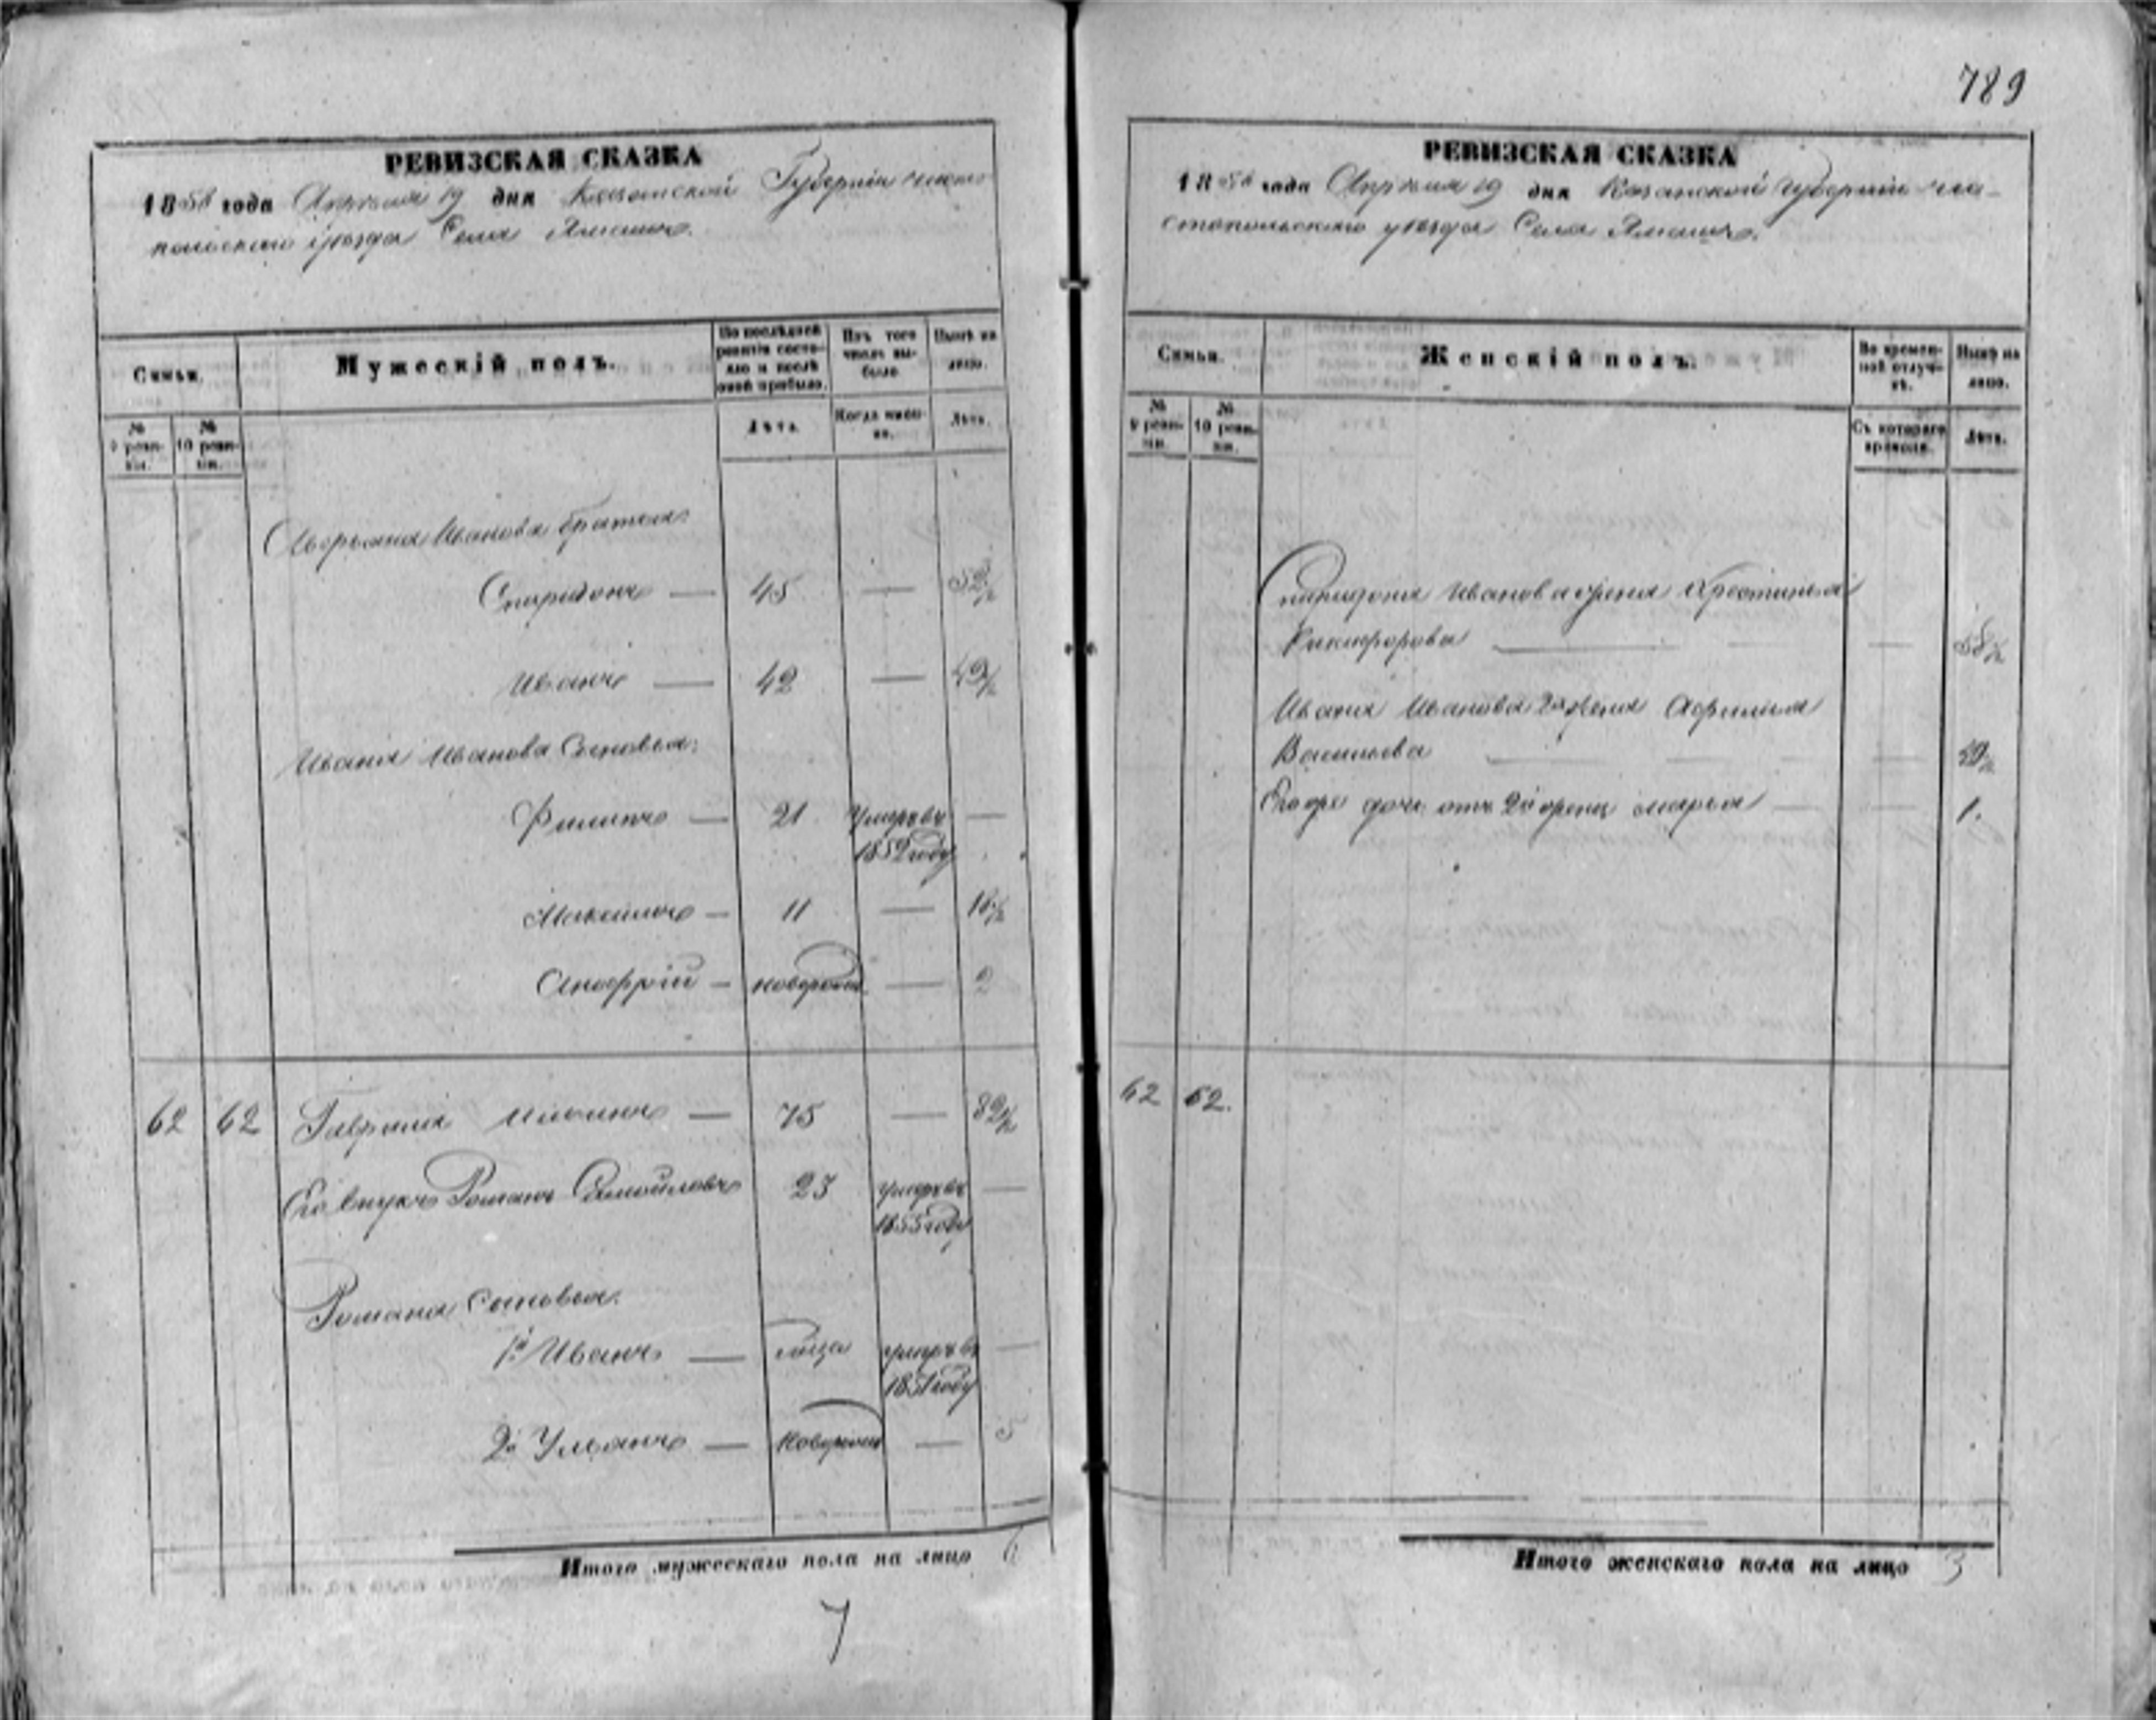 789
РЕВИЗСКАЯ СКАЗКА
1858 года Апреля 19 дня Казанской Губернии чисто-
польскаго уезда Села Ямашъ.
Семьи.
Мужескій полъ.
По послѣдней ревизіи состо-
яло и послѣ оной прибыло.
Изъ того числа вы-
было
Нынѣ на лицо.
№ 9 реви-
зіи.
№ 10 реви-
зіи.
Лѣта.
Когда имен-
но.
Лѣта.
Аверьяна Иванова братья:
Спиридонъ — 45 — 52½
Иванъ — 42 — 49½
Ивана Иванова Сыновья:
Филипъ — 21 умеръ въ —
1852 году
Максимъ — 11 — 18½
Анофрій — новорожд. — 2
62 62 Гаврила Ильинъ — 75 — 82½
Его внукъ Романъ Самойловъ 23 умеръ въ —
1855 году
Романа Сыновья:
1й Иванъ — года умеръ въ —
1851 году
2й Ульянъ — новорожд — 5
Итого мужескаго пола на лицо 6
7
РЕВИЗСКАЯ СКАЗКА
1858 года Апреля 19 дня Казанской губернии чи-
стопольскаго уезда Села Ямашъ.
Семьи.
Женскій полъ.
Во времен-
ной отлуч-
кѣ.
Нынѣ на лицо.
№ 9 реви-
зіи.
№ 10 реви-
зіи.
Съ котораго времени.
Лѣта.
Спиридона Иванова жена Крестинья
Никифорова — — 58½
Ивана Иванова 2я жена Афимья
Васильева — —
Его дочь отъ 2й жены Марья — — 1.
62 62.
Итого женскаго пола на лицо 3